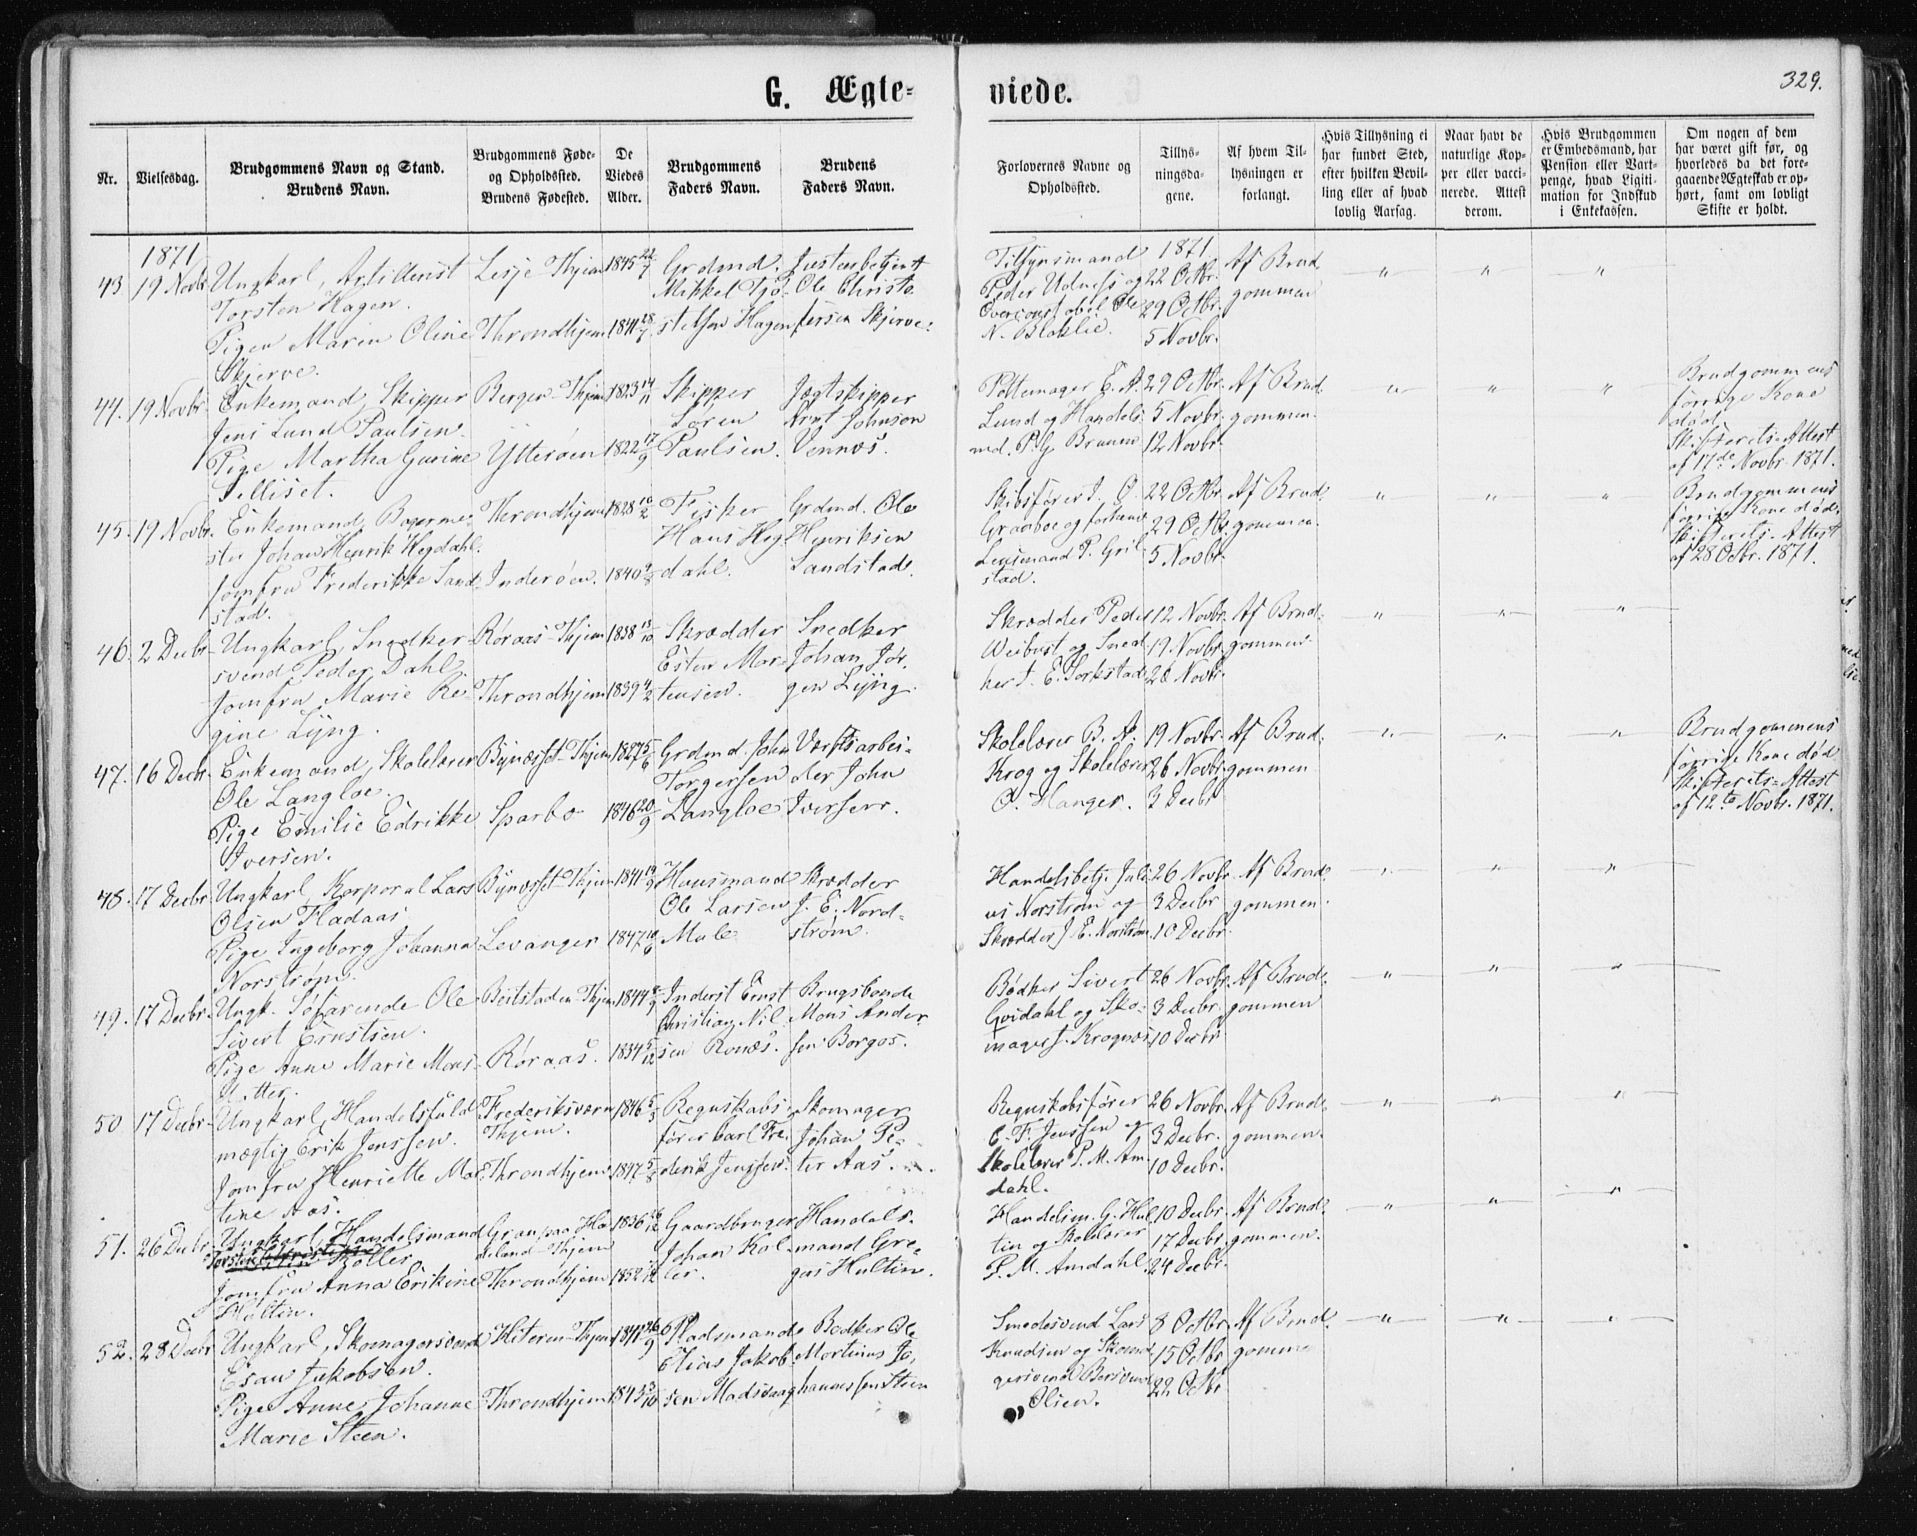 G. Ægte-
viede.
329.
Nr.
Vielsesdag.
Brudgommens Navn og Stand.
Brudens Navn.
Brudgommens Føde-
og Opholdssted.
Brudens Fødested.
De
Viedes
Alder.
Brudgommens
Faders Navn.
Brudens
Faders Navn.
Forlovernes Navne og
Opholdssted.
Tillys-
ningsda-
gene.
Af hvem Til-
lysningen er
forlangt.
Hvis Tillysning ei
har fundet Sted,
efter hvilken Bevil-
ling eller af hvad
lovlig Aarsag.
Naar havt de
naturlige Kop-
per eller vacci-
nerede. Attest
derom.
Hvis Brudgommen
er Embedsmand, har
Pension eller Vart-
penge, hvad Ligiti-
mation for Indskud
i Enkekassen.
Om nogen af dem
har været gift før, og
hvorledes da det fore-
gaaende Ægteskab er op-
hørt, samt om lovligt
Skifte er holdt.
1871
43 19 Novbr
Ungkarl, Artillerist
Torsten Hagen.
Pigen Maren Oline
Skjerve.
Lesje Thjem
Throndhjem
1845 22/7
1841 28/7
Grdmd.
Mikkel Tjø-
stelsen Hagen
Justisbetjent
Ole Christo
fersen Skjerve.
Tilsynsmand
Peder Udness og
Overconstabel Ole
N. Bloklie.
1871
22 Octbr.
29 Octbr.
5 Novbr.
Af Brud
gommen
" " "
44. 19 Novbr
Enkemand, Skipper
Jens Lund Paulsen.
Pige Martha Gurine
Tilliset.
Bergen Thjem
Ytterøen
1823 14/11
1822 17/9
Skipper
Søren
Paulsen.
Jægtskipper
Arnt Johnson
Vennæs.
Pottemager E. A.
Lund og Handels
md. P. G. Brunn
29 Octbr.
5 Novbr.
12 Novbr.
Af Brud
gommen.
" " "
Brudgommens
forrige Kone
død
Skifterets-Attest
af 17de Novbr. 1871.
45. 19 Novbr.
Enkemand, Bagerme-
ster Johan Henrik Hegdahl.
Jomfru Frederikke Sand
stad.
Throndhjem
Inderøen.
1828 10/2
1840 9/8
Fisker
Hans Heg-
dahl.
Grdmd. Ole
Henriksen
Sandstad.
Skibsfører J. O.
Graaboe og forhenv.
Lensmand P. Gril
stad.
22 Octbr.
29 Octbr.
5 Novbr.
Af Brud
gommen.
" " "
Brudgommens
forrige Kone død.
Skifterets-Attest
af 28 Octbr. 1871.
46. 2 Decbr
Ungkarl, Snedker
svend Peder Dahl
Jomfru Marie Re-
gine Lyng.
Røraas-Thjem
Throndhjem
1838 13/10
1839 4/2
Skrædder
Ester Mor
tensen.
Snedker
Johan Jør
gen Lyng.
Skrædder Peder
Weibust og Sned
ker J. E. Torkstad
12 Novbr.
19 Novbr.
26 Novbr.
Af Brud
gommen
" " "
47. 16 Decbr.
Enkemand, Skolelærer
Ole Langloe.
Pige Emilie Edrikke
Iversen.
Bynæsset-Thjem
Sparbo
1827 5/6
1846 20/9
Grdmd. John
Torgersen
Langloe
Værftsarbei-
der John
Iversen.
Skolelærer B. A.
Krog og Skolelærer
O. Hanger.
19 Novbr.
26 Novbr.
3 Decbr
Af Brud
gommen
" " "
Brudgommens
forrige Kone død
Skifterets-Attest
af 12te Novbr. 1871.
48. 17 Decbr.
Ungkarl, Korporal Lars
Olsen Fladaas
Pige Ingeborg Johanna
Norstrøm.
Bynæsset-Thjem
Levanger
1841 19/9
1847 19/6
Husmand
Ole Larsen
Mule
Skrædder
J. E. Nord-
strøm.
Handelsbetj. Juli
us Norstrøm og
Skrædder J. E. Norstrøm
26 Novbr.
3 Decbr.
10 Decbr.
Af Brud
gommen.
" " "
49. 17 Decbr.
Ungk. Søfarende Ole
Sivert Ernstsen.
Pige Anne Marie Mons-
datter.
Beitstaden Thjem
Røraas.
1844 8/9
1834 5/12
Inderst Ernst
Christian Nil
sen Rones.
Brugsbonde
Mons Ander
sen Borgos.
Bødker Sivert
Gvidahl og Sko-
mager J. Krognæs
26 Novbr.
3 Decbr.
10 Decbr.
Af Brud
gommen
" " "
50. 17 Decbr.
Ungkarl, Handelsfuld
mægtig Erik Jenssen.
Jomfru Henriette Ma
tine Aas.
Frederiksværn
Thjem.
Throndhjem
1846 5/3
1847 5/8
Regnskabs
fører Carl Fre
derik Jenssen.
Skomager
Johan Pe-
ter Aas.
Regnskabsfører
C. F. Jenssen og
Skolelærer P. M. Am
dahl.
26 Novbr.
3 Decbr.
10 Decbr.
Af Brud
gommen.
" " "
51. 26 Decbr.
Ungkarl, Handelsmand
Køller
Jomfru Anna Erikine
Hultin.
Gran paa Ha
deland-Thjem
Throndhjem
1836
1852
Gaardbruger
Johan Køl
ler.
Handels
mand Gre-
gus Hultin.
Handelsm. G. Hul
tin og Skolelærer
P. M. Amdahl.
10 Decbr.
17 Decbr.
24 Decbr.
Af Brud
gommen.
" " "
52. 28 Decbr
Ungkarl, Skomagersvend
Esau Jakobsen.
Pige Anne Johanne
Marie Steen.
Hiteren-Thjem
Throndhjem
1841 26/9
1843 3/10
Pladsmand
Elias Jakob
sen Madsvaag
Bødker Ole
Martinus Jo
hannessen Steen
Smedesvend Lars
Knudsen og Skoma
gersvend Bersvend
Olsen.
8 Octbr.
15 Octbr
22 Octbr
Af Brud
gommen
" " "